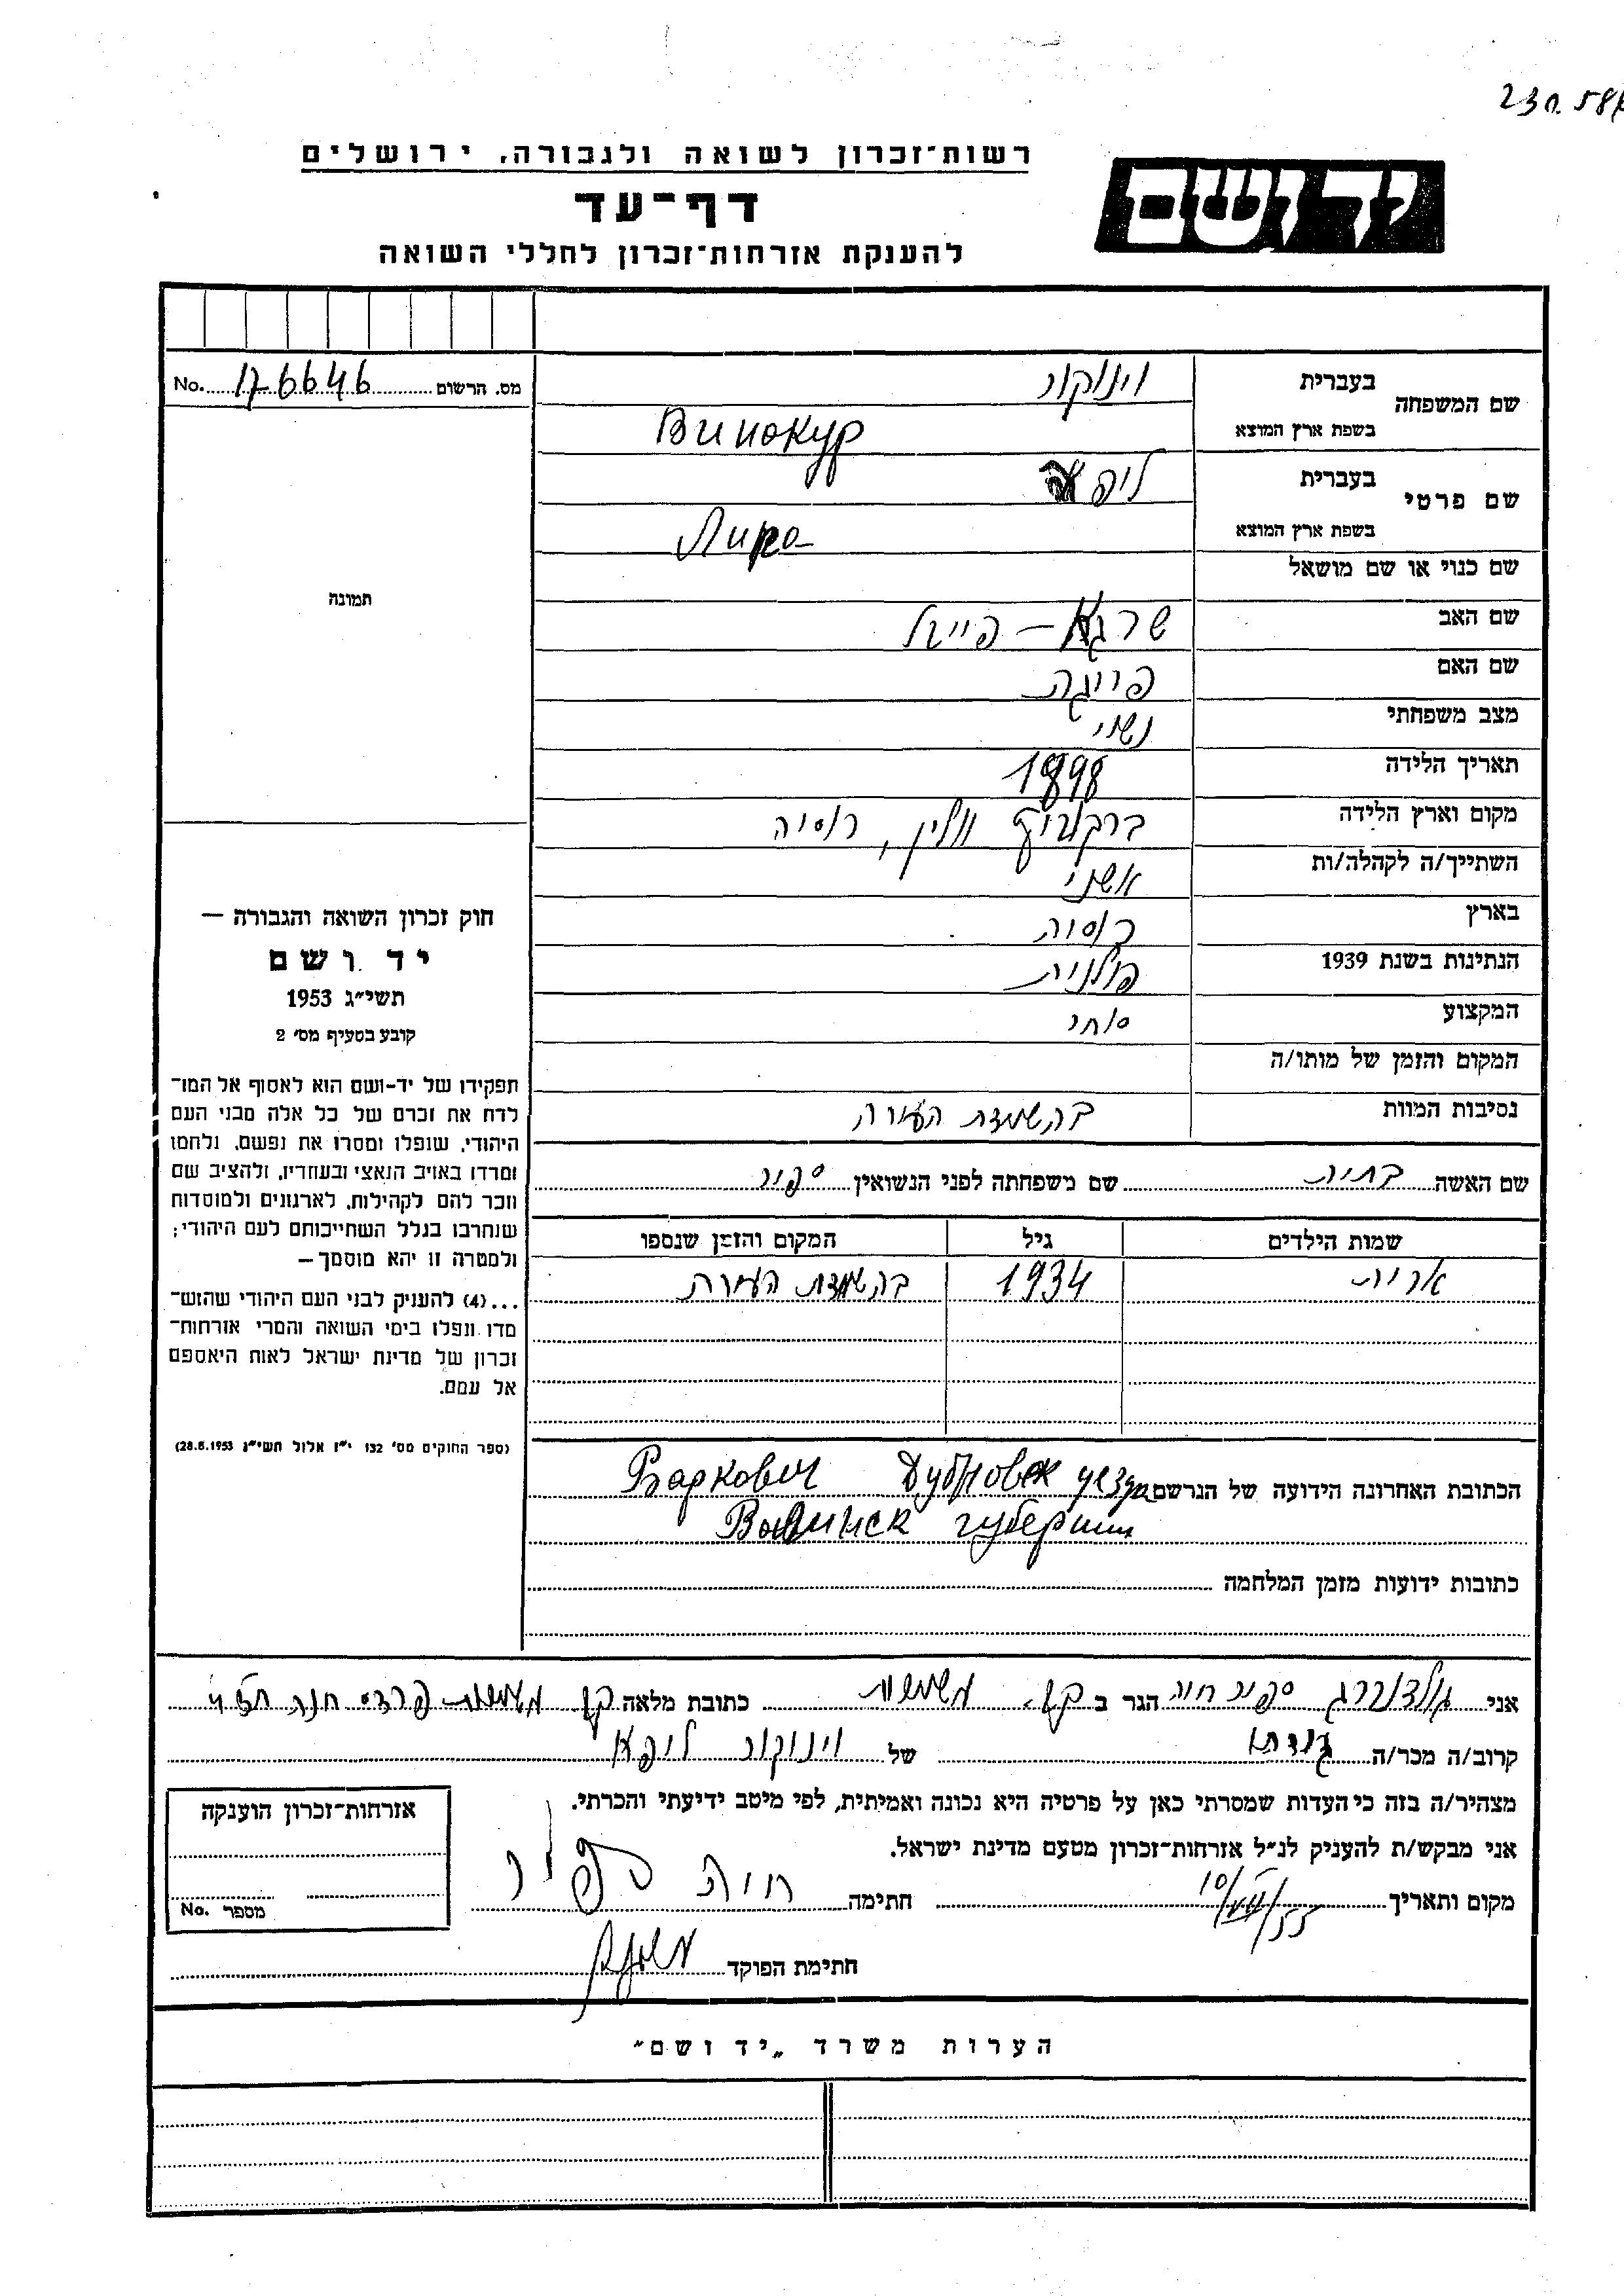 230.58/
רשות־זכרון לשואה ולגבורה, ירושלים
יד ושם
דף־עד
להענקת אזרחות־זכרון לחללי השואה
מס. הרשום 176646 No.
שם המשפחה
בעברית וינוקור
בשפת ארץ המוצא Винокур
שם פרטי
בעברית ליפא
בשפת ארץ המוצא
שם כנוי או שם מושאל
שם האב שרגא – פייבל
שם האם פייגה
מצב משפחתי נשוי
תאריך הלידה 1898
מקום וארץ הלידה ווהלין, רוסיה
השתייך/ה לקהלה/ות
בארץ רוסיה
הנתינות בשנת 1939 פולנית
המקצוע סוחר
המקום והזמן של מותו/ה
נסיבות המוות בהשמדת העירה
שם האשה בתיה שם משפחתה לפני הנשואין ספיר
שמות הילדים גיל המקום והזמן שנספו
1934 בהשמדת העירה
הכתובת האחרונה הידועה של הנרשם Варкович Дубновск уезда
Волинск губернии
כתובות ידועות מזמן המלחמה
תמונה
חוק זכרון השואה והגבורה —
יד ושם
תשי״ג 1953
קובע בסעיף מס׳ 2
תפקידו של יד-ושם הוא לאסוף אל המו־
לדת את זכרם של כל אלה מבני העם
היהודי, שנפלו ומסרו את נפשם, נלחמו
ומרדו באויב הנאצי ובעוזריו, ולהציב שם
וזכר להם לקהילות, לארגונים ולמוסדות
שנחרבו בגלל השתייכותם לעם היהודי;
ולמטרה זו יהא מוסמך —
...(4) להענית לבני העם היהודי שהוש־
מדו ונפלו בימי השואה והמרי אזרחות־
זכרון של מדינת ישראל לאות היאספם
אל עמם.
(ספר החוקים מס׳ 132 י״ז אלול תשי״ג 28.8.1953)
אני גולדברג ספיר חיה הגר ב קב. משמרות כתובת מלאה קב משמרות פרדס חנה
קרוב/ה מכר/ה גיסתו של וינוקור ליפא
מצהיר/ה בזה כי העדות שמסרתי כאן על פרטיה היא נכונה ואמיתית, לפי מיטב ידיעתי והכרתי.
אני מבקש/ת להעניק לנ״ל אזרחות־זכרון מטעם מדינת ישראל.
מקום ותאריך 10/VII/55 חתימה חיה ספיר
חתימת הפוקד
אזרחות־זכרון הוענקה
מספר No.
הערות משרד „יד ושם״